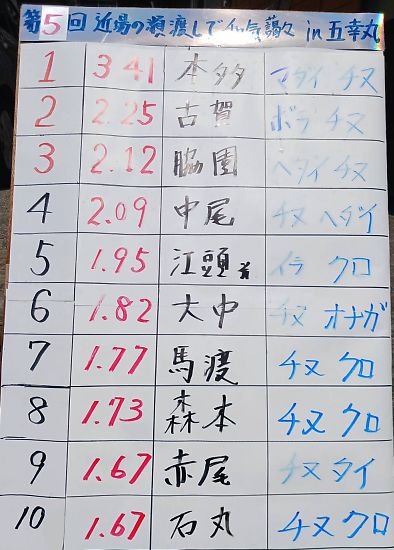 第5回 近場の瀬渡しで和気藹々 in 五幸丸
1 3.41 本多 マダイ チヌ
2 2.25 古賀 ボラ チヌ
3 2.12 脇園 ヘダイ チヌ
4 2.09 中尾 チヌ ヘダイ
5 1.95 江頭 イラ クロ
6 1.82 大中 チヌ オナガ
7 1.77 馬渡 チヌ クロ
8 1.73 森本 チヌ クロ
9 1.67 赤尾 チヌ タイ
10 1.67 石丸 チヌ クロ